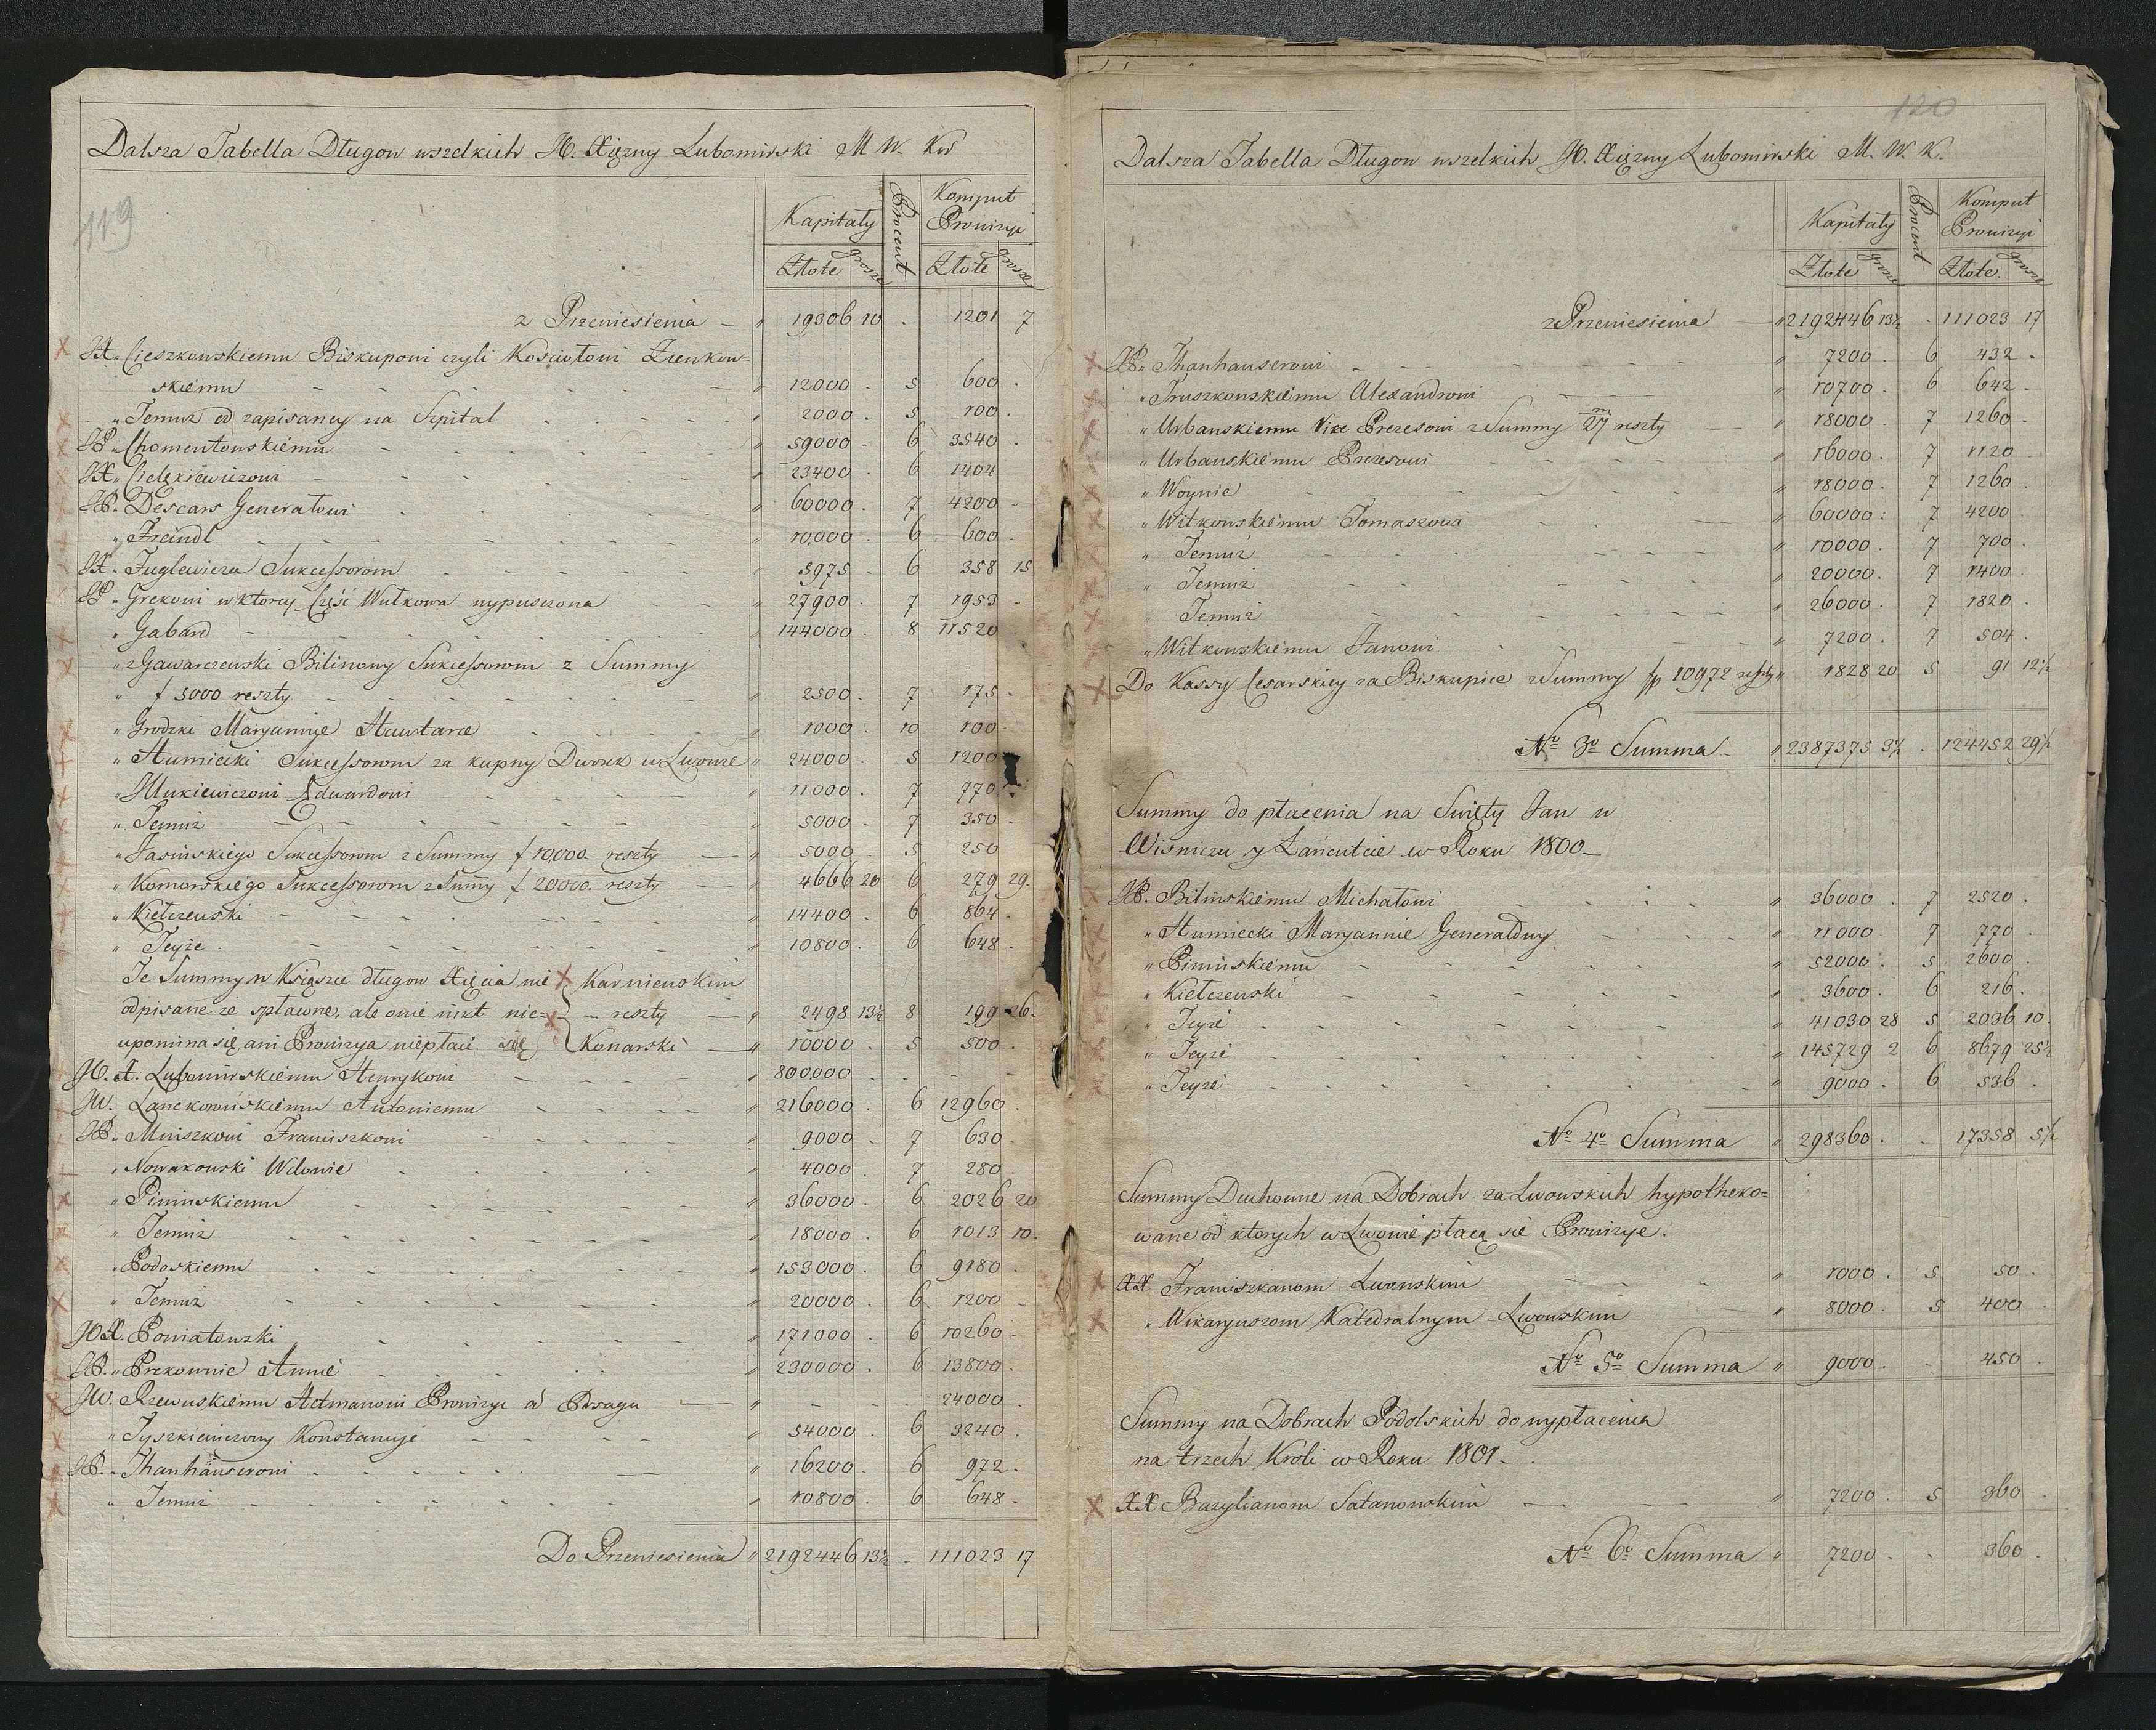 Dalsza Tabella Długow wszelkich JO. Xiężny Lubomirski M W. Kor
119
Kapitały Procent Komput Prowizyi
Złote grosze Złote grosze
z Przeniesienia — " 19306 10 . 1201 7
Cieszkowskiemu Biskupowi czyli Kosciołowi Zienkow=
skiemu " 12000 - 5 600 .
" Temuż od zapisaney na Szpital " 2000 . 5 100 .
JP. Chomentowskiemu " 59000 - 6 3540 .
Cielękiewiczowi " 23400 . 6 1404
JP. Descars Generałowi " 60000 . 7 4200 -
" Freindl " 10,000 . 6 600
Fuglewicza Sukcessorom " 5975 - 6 358 15
JP. Grekowi w ktorey Część Wulkowa wypuszczona " 27900 . 7 1953 -
" Gabard " 144000 . 8 11520
" z Gawarczewski Bilinowy Sukcessorom z Summy
" f 5000 reszty " 2500 . 7 175 -
" Grodzki Maryannie " 1000 . 10 100
" Humiecki Sukcessorom za kupny Dworek w Lwowie " 24000 . 5 1200
" Ilukiewiczowi Eduardowi " 11000 . 7 770
" Temuż " 5000 . 7 350 -
" Jasińskiego Sukcessorom z Summy f 10,000 reszty — " 5000 . 5 250
" Komorskiego Sukcessorom z Sumy f 20000. reszty — " 4666 20 6 279 29.
" Kielczewski " 14400 . 6 864 .
" Teyże . " 10800 . 6 648 .
Te Summy w Książce długow Xięcia nie Karniewskim
odpisane że spłacone, ale o nie nikt nie= reszty — " 2498 13½ 8 199 26.
upomina się, ani Prowizya niepłaci się Konarski — " 10000 . 5 500 .
JO. X. Lubomirskiemu Henrykowi " 800,000 . . - -
JW. Lanckorońskiemu Antoniemu " 216000 . 6 12960 .
JP. Mniszkowi Franciszkowi " 9000 . 7 630 .
" Nowakowski Wdowie " 4000 . 7 280 .
" Pininskiemu " 36000 . 6 2026 20
" Temuż " 18000 . 6 1013 10.
" Podoskiemu " 153000 . 6 9180 .
" Temuż " 20000 . 6 1200 -
JOX. Poniatowski " 171000 . 6 10260 .
JP. " Prekownie Annie " 230000 . 6 13800 .
JW. Rzewuskiemu Hetmanowi Prowizyi od Posagu — " - - . 24000 .
" Tyszkiewiczowy Konstancyi " 54000 . 6 3240 .
JP. " Thanhauserowi " 16200 . 6 972 .
" Temuż " 10800 . 6 648 .
Do Przeniesienia " 2192446 13½ - 111023 17
120
Dalsza Tabella Długow wszelkich JO. Xiężny Lubomirski M. W. K.
Kapitały Procent Komput Prowizyi
Złote grosze Złote. grosze
z Przeniesienia — " 2192446 13½ . 111023 17
JP. " Thanhauserowi " 7200 . 6 432 .
" Truszkowskiemu Alexandrowi " 10700 . 6 642 .
" Urbanskiemu Vice Prezesowi z Summy 27 m reszty — " 18000 . 7 1260 .
" Urbanskiemu Prezesowi " 16000 . 7 1120 .
" Woynie " 18000 . 7 1260 .
" Witkowskiemu Tomaszowi " 60000 . 7 4200 .
" Temuż " 10000 . 7 700 .
" Temuż " 20000 . 7 1400 .
" Temuż " 26000 . 7 1820 .
" Witkowskiemu Janowi " 7200 . 7 504 .
Do Kassy Cesarskiey za Biskupice z Summy fp 10972 reszty " 1828 20 5 91 12½
No 3o Summa - " 2387375 3½ . 124452 29½
Summy do płacenia na Swięty Jan w
Wisniczu y Łańcucie w Roku 1800 —
JP. Bilinskiemu Michałowi " 36000 . 7 2520 .
" Humiecki Maryannie Generałowy " 11000 . 7 770 .
" Pininskiemu " 52000 . 5 2600 .
" Kielczewski " 3600 . 6 216 .
" Teyże " 41030 28 5 2036 10.
" Teyże " 145729 2 6 8679 25½
" Teyże " 9000 . 6 536 .
No 4o Summa " 298360 . . 17358 5½
Summy Duchowne na Dobrach za Lwowskich hypotheko=
wane od ktorych w Lwowie płacą się Prowizye.
XX Franciszkanom Lwowskim " 1000 . 5 50 .
" Wikaryuszom Katedralnym Lwowskim " 8000 . 5 400 .
No 5o Summa " 9000 . - 450 .
Summy na Dobrach Podolskich do wypłacenia
na trzech Kroli w Roku 1801 -
XX Bazylianom Satanowskim " 7200 . 5 360 .
No 6o Summa " 7200 . . 360 .